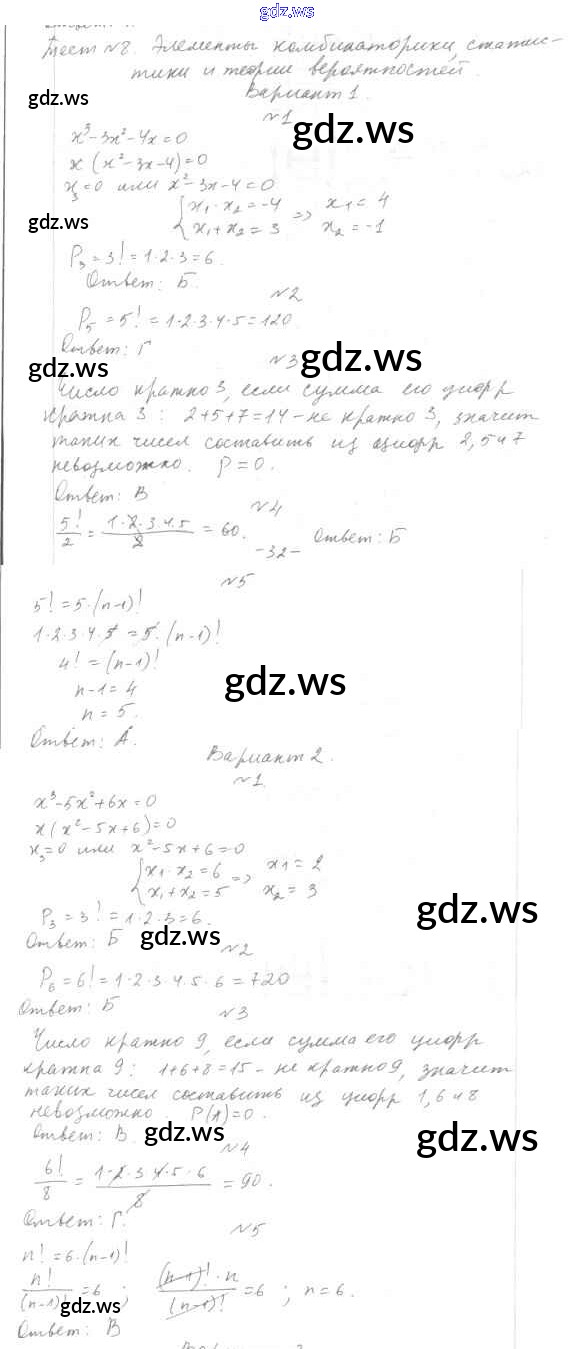 gdz.ws
Тест №8. Элементы комбинаторики, статис-
тики и теории вероятностей.
gdz.ws
Вариант 1.
№1
gdz.ws
x³-3x²-4x=0
x(x²-3x-4)=0
x₃=0 или x²-3x-4=0
gdz.ws
{x₁·x₂=-4 => x₁=4
x₁+x₂=3 x₂=-1
P₃=3!=1·2·3=6.
Ответ: Б.
№2
P₅=5!=1·2·3·4·5=120.
Ответ: Г
gdz.ws
№3
gdz.ws
Число кратно 3, если сумма его цифр
кратна 3: 2+5+7=14-не кратно 3, значит
таких чисел составить из цифр 2,5 и 7
невозможно. P=0.
Ответ: В
№4
5!/2 = 1·2·3·4·5/2 = 60. Ответ: Б
-32-
№5
5!=5·(n-1)!
1·2·3·4·5=5·(n-1)!
4!=(n-1)!
gdz.ws
n-1=4
n=5.
Ответ: А.
Вариант 2.
№1.
x³-5x²+6x=0
x(x²-5x+6)=0
x₃=0 или x²-5x+6=0
{x₁·x₂=6 => x1=2
x₁+x₂=5 x₂=3
gdz.ws
P₃=3!=1·2·3=6.
Ответ: Б
gdz.ws
№2
P₆=6!=1·2·3·4·5·6=720
Ответ: Б
№3
Число кратно 9, если сумма его цифр
кратна 9: 1+6+8=15-не кратно 9, значит
таких чисел составить из цифр 1,6 и 8
невозможно. P(A)=0.
Ответ: В.
gdz.ws
gdz.ws
№4
6!/8 = 1·2·3·4·5·6/8 = 90.
Ответ: Г.
№5
n!=6·(n-1)!
n!/(n-1)!=6; (n-1)!·n/(n-1)!=6; n=6.
gdz.ws
gdz.ws
Ответ: В